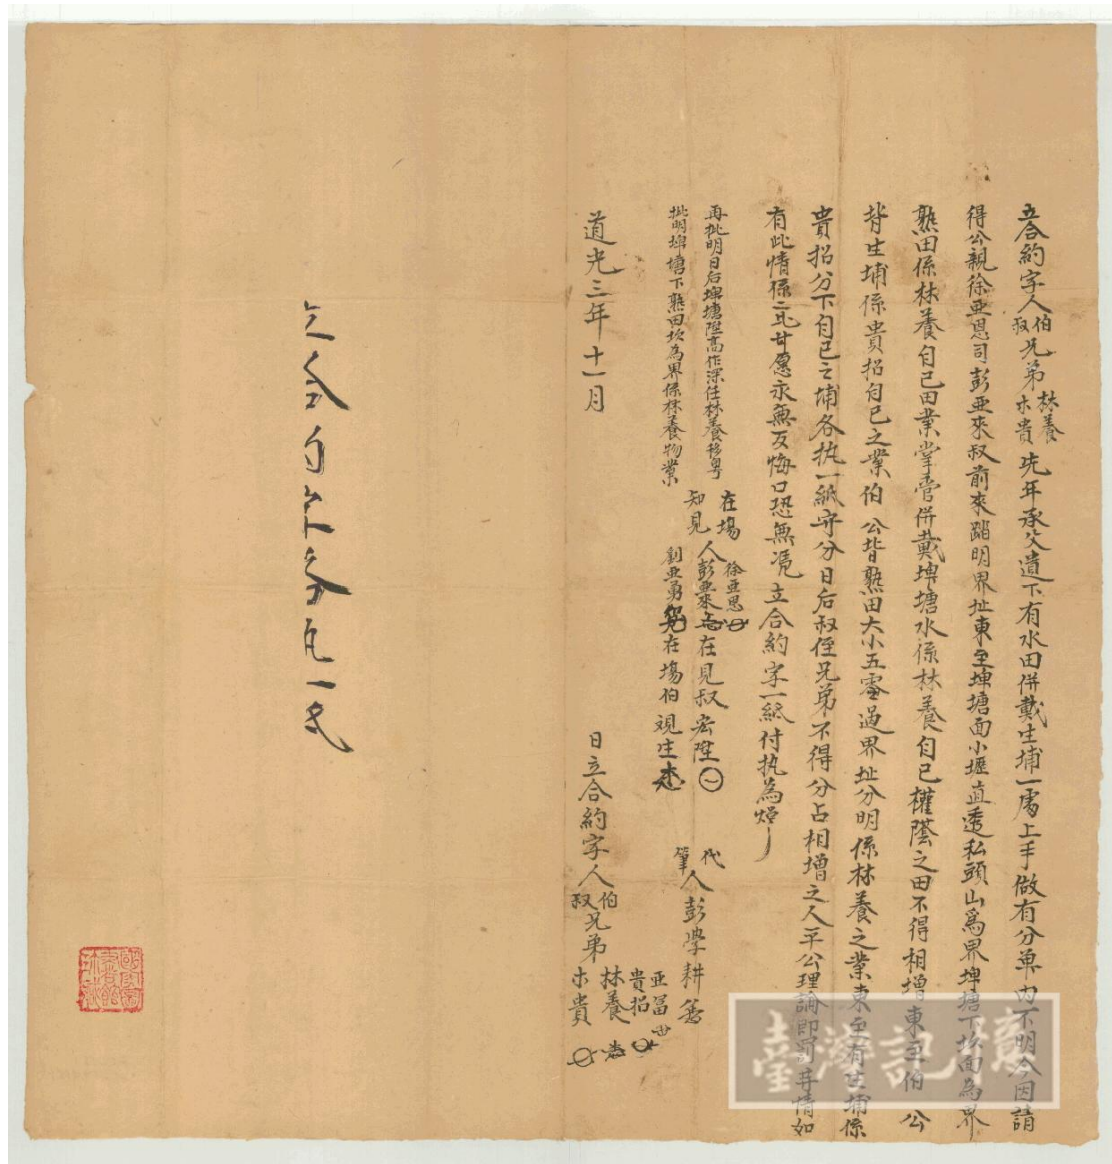 立合約字人伯叔兄弟林養木貴先年承父遺下有水田併戴生埔一處上手做有分單內不明今因請
得公親徐亞恩司彭亞來叔前來踏明界址東至埤塘面小壢直透私頭山為界埤塘下坎面為界
熟田係林養自己田業掌管併戴埤塘水係林養自己權蔭之田不得相增東至伯公
背生埔係貴招自己之業伯公背熟田大小五處過界址分明係林養之業東至有生埔係
貴招分下自己之埔各执一紙守分日后叔侄兄弟不得分占相增之人平公理論即罰再情如
有此情係二比甘愿永無反悔口恐無憑立合約字一紙付执為炤
再批明日后埤塘陞高作深任林養移
批明埤塘下熟田坎為界係林養物業
在場知見人徐亞恩
彭亞來
劉亞勇
在見叔宏陞
在場伯覌生
代筆人彭學耕
道光三年十一月 日立合約字人伯叔兄弟
亞富
貴招
林養
木貴
立合約字分凡一氏
臺灣記憶